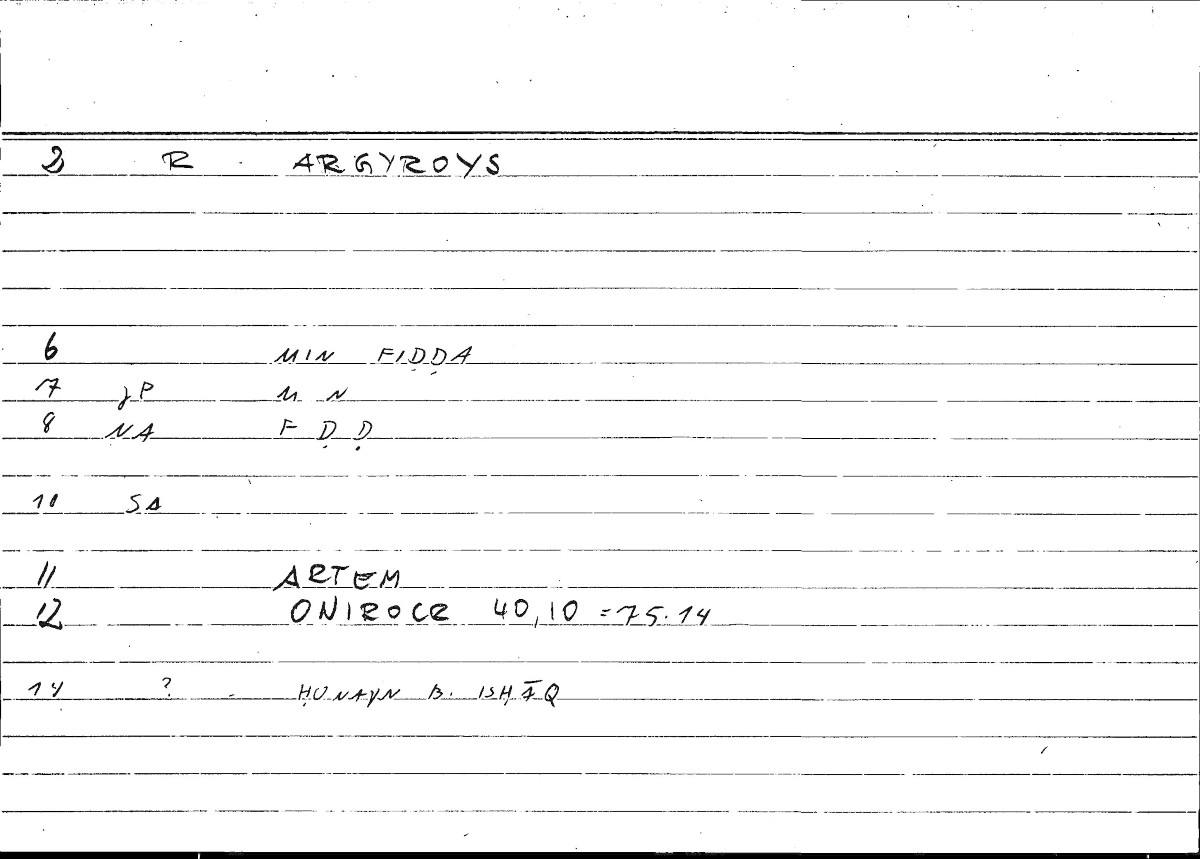 2 R ARGYROYS
6 MIN FIḌḌA
7 JP M N
8 NA F Ḍ Ḍ
10 SA
11 ARTEM
12 ONIROCR 40,10 = 75.14
14 ? ḤUNAYN B. ISḤĀQ